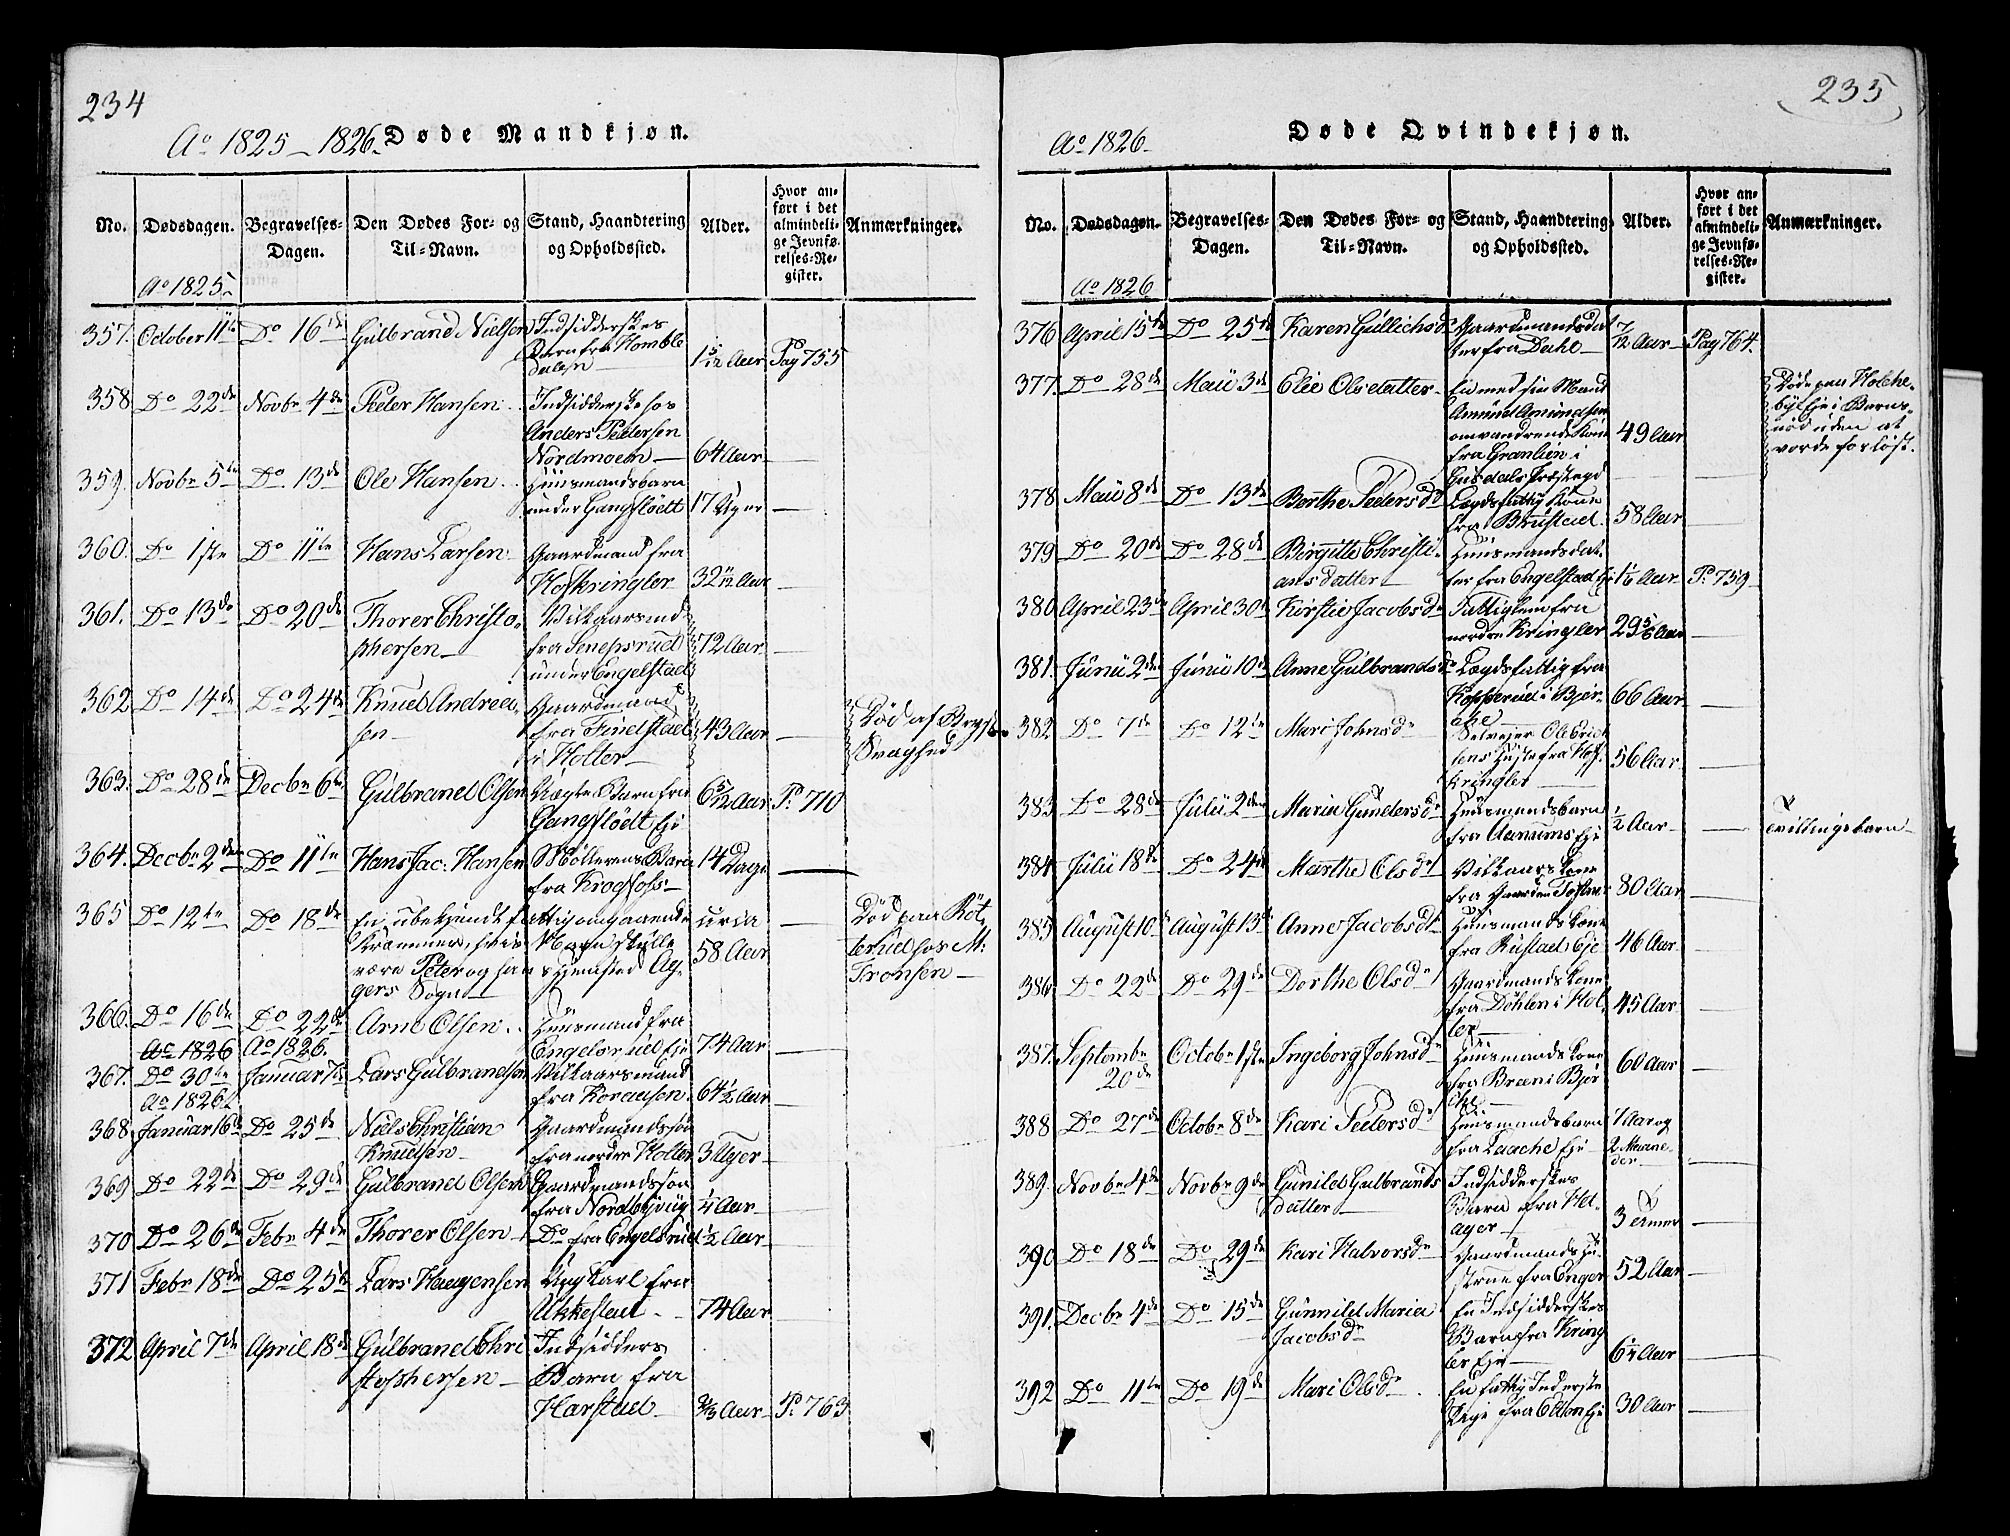 234
Ao 1825 - 1826. Døde Mandkjøn.
No. Dødsdagen. Begravelses-Dagen. Den Dødes For- og Til-Navn. Stand, Haandtering og Opholdssted. Alder. Hvor anført i det almindelige Jevnførelses-Register. Anmærkninger.
Ao 1825
357. October 11te Do 16de Gülbrand Nielsen Indsidderskes
Barn fra Homble
dalen 1 5/12 Aar Pag 755
358 Do 22de Novbr 4de Peder Hansen Indsidderske hos
Anders Pedersen
Nordmoen 64 Aar
359. Novbr 5te Do 13de Ole Hansen Huusmandsbarn
under Gangfløedt 17 Uger
360. Do 1ste Do 11te Hans Larsen Gaardmand fra
Hofkringler 32 11/12 Aar
361. Do 13de Do 20de Thorer Christo-
phersen Vilkaarsmd
fra Senepsrud
under Engelstad 72 Aar
362 Do 14de Do 24de Knud Andrea-
sen Gaardmand
fra Findstad
i Holter 43 Aar Død af Bryst
Svaghed
363. Do 28de Decbr 6te Gülbrand Olsen Uægte Barn fra
Gangflödt Eje 6 5/12 Aar P. 710
364. Decbr 2den Do 11te Hans Jac: Hansen Möllerens Barn
fra Krogfoss 14 Dage
365 Do 12te Do 18de En ubekjendt fattig omgaaende
Kræmmer, hvis Navn skulle
være Peter og hans Hjemsted Ag-
gers Sogn circa
58 Aar Død paa Röt
terud hos M:
Tronsen
366. Do 16de Do 22de Arne Olsen Huusmand fra
Engelsrud Eje 74 Aar
Ao 1826 Ao 1826.
367. Do 30te Januar 7de Lars Gulbrandsen Vilkaarsmand
fra Koraasen 64 1/2 Aar
Ao 1826
368 Januar 16de Do 25de Niels Christian
Knudsen Gaardmandssøn
fra nordre Holter 3 Uger
369 Do 22de Do 29de Gülbrand Olsen Gaardmandssøn
fra Nordbyvüg 1/4 Aar
370 Do 26de Febr 4de Thorer Olsen Do fra Engelsrud 1/2 Aar
371 Febr 18de Do 25de Lars Haagensen Ungkarl fra
Ukkestad 74 Aar
372 April 7de April 18de Gülbrand Chri
stophersen Indsidders
Barn fra
Harstad 2/3 Aar P. 763
235
Ao 1826 Døde Qvindekjøn.
No. Dødsdagen. Begravelses-Dagen. Den Dødes For- og Til-Navn. Stand, Haandtering og Opholdssted. Alder. Hvor anført i det almindelige Jevnførelses-Register. Anmærkninger.
Ao 1826
376 April 15de Do 25de Karen Güllichsdr Gaardmandsdat
ter fra Dahl 7/12 Aar Pag 764.
377. Do 28de Maii 3de Elie Olsdatter En med sin Mand
Amünd Amündsen
omvandrende Kone
fra Granlien i
Gusdals Præstegd 49 Aar Døde paa Holche-
bye Eje i Barns-
nød uden at
vorde forløst.
378 Maii 8de Do 13de Berthe Pedersdr Lægdsfattig Kone
fra Brustad 58 Aar
379 Do 20de Do 28de Birgitte Christi-
ansdatter Huusmandsdat-
ter fra Engelstad Ej 1 1/6 Aar P. 759
380 April 23de April 30te Kirstie Jacobsdr Fattiglem fra
nordre Kringler 29 5/6 Aar
381. Jünii 2den Jünii 10de Anne Gülbrandsdr Lægdsfattig fra
Kopperud i Bjør-
che 66 Aar
382 Do 7de Do 12te Mari Johnsdr Selvejer Ole
Hustrue fra Hof
kringler 56 Aar
383 Do 28de Jülii 2den Maria Gundersdr Huusmandsbarn
fra Aamums Eje 1/2 Aar Tvillingebarn
384 Jülii 18de Do 24de Marthe Olsdr Vilkaarskone
fra Gaarden 80 Aar
385 August 10de August 13de Anne Jacobsdr Huusmandskone
fra Rustad Eje 46 Aar
386 Do 22de Do 29de Dorthe Olsdr Gaardmandskone
fra Döhlen i Hol-
ter 45 Aar
387. Septembr
20de Octobr 1ste Ingeborg Johnsdr Huusmandskone
fra Bræn i Bjør
che 60 Aar
388 Do 27de Octobr 8de Kari Pedersdr Huusmandsbarn
fra Laache Eje 1 Aar og
2 Maane-
der
389. Novbr 4de Novbr 9de Gunild Gulbrands
datter Indsidderskes
Barn fra Hel-
ager 3
390 Do 18de Do 29de Kari Halvorsdr Gaardmandshu-
strue fra Enger 52 Aar
391. Decbr 4de Do 15de Günnild Maria
Jacobsdr En Indsidderskes
Barn fra Kring
ler Eje 6 1/4 Aar
392 Do 11te Do 19de Mari Olsdr En fattig Inderste
Pige fra Olson Eje 30 Aar